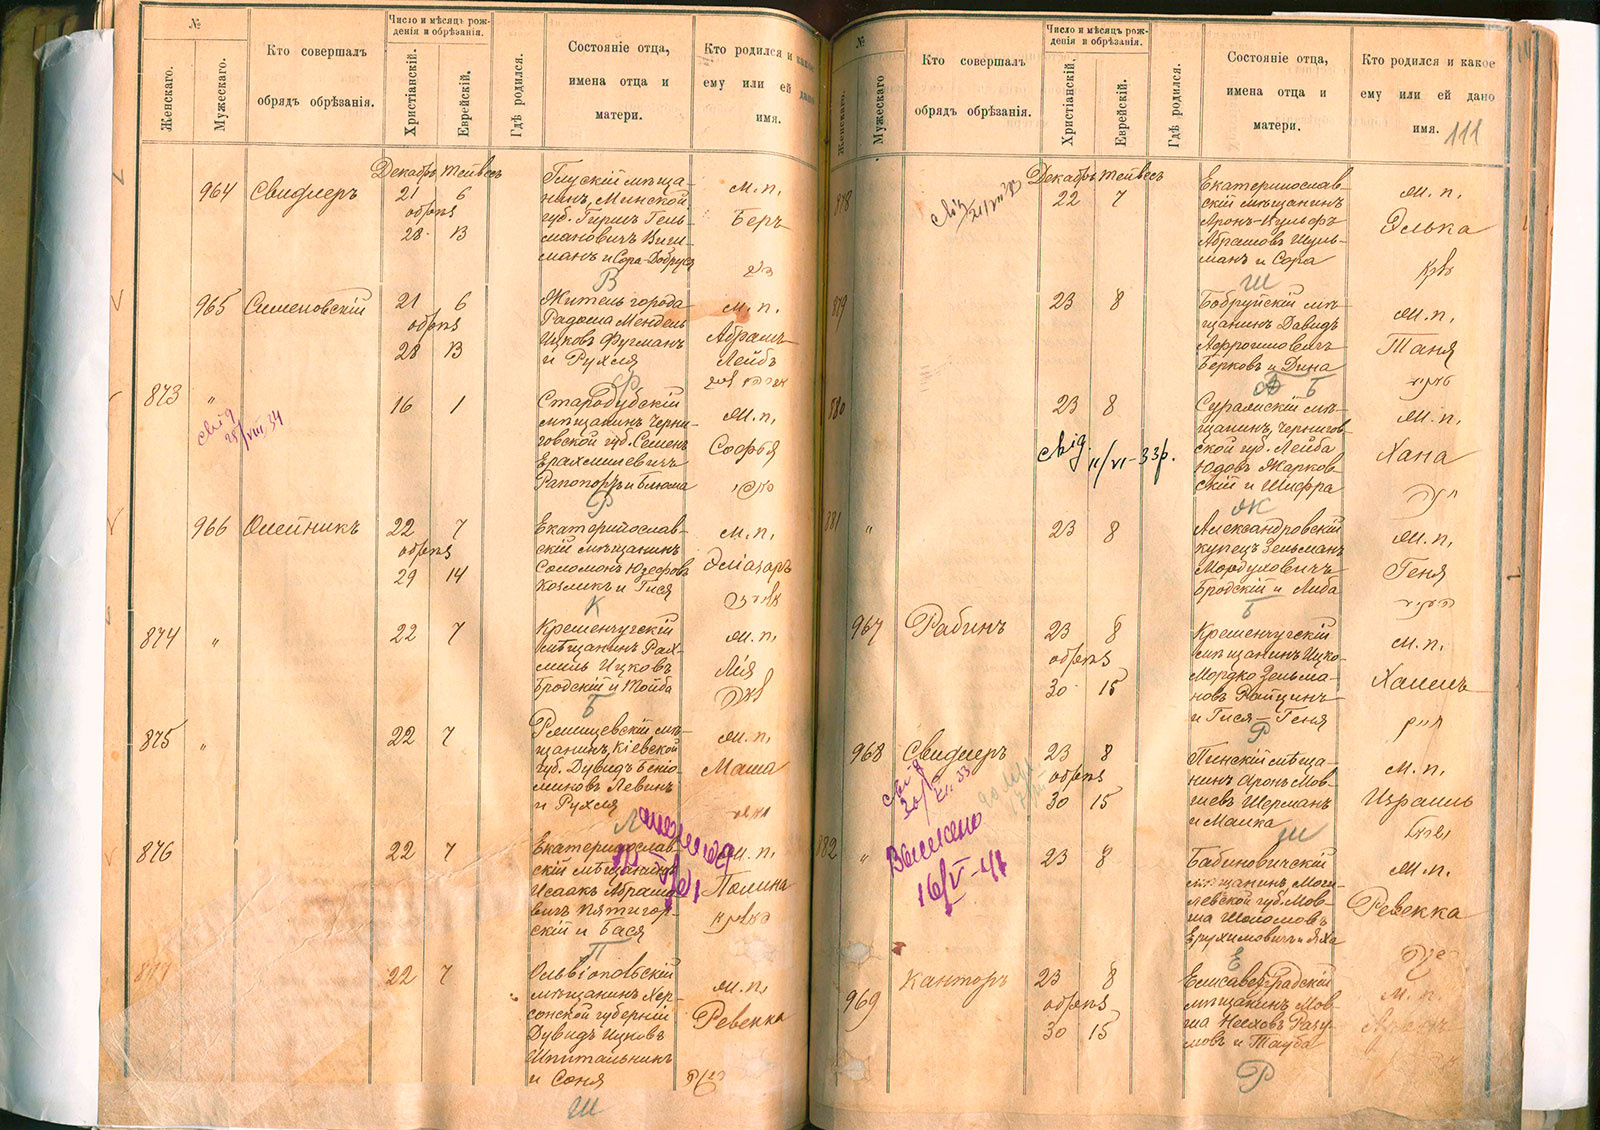 №
Женскаго.
Мужескаго.
Кто совершалъ
обрядъ обрѣзанія.
Число и мѣсяцъ рож-
денія и обрѣзанія.
Христіанскій.
Еврейскій.
Гдѣ родился.
Состояніе отца,
имена отца и
матери.
Кто родился и какое
ему или ей дано
имя.
Декабрь Тейвесъ
964 Свидлеръ
21 6
обрѣз
28 13
Глускій мѣща-
нинъ, Минской
губ. Гиршъ Гель-
мановичъ
манъ и Сора-Добруся
м. п.
Беръ
В
965 Сименовскій
21 6
обрѣз
28 13
Житель города
Радома Мендель
Ицковъ Фугманъ
и Рухля
м. п.
Абрамъ
Лейбъ
Ф
873 "
16 1
Стародубскій
мѣщанинъ, Черни-
говской губ. Семенъ
Ерахмилевичъ
Рапопортъ и Блюма
м. п.
Софья
Р
966 Олейникъ
22 7
обрѣз
29 14
Екатеринослав-
скій мѣщанинъ
Соломонъ Юзефовъ
Козликъ и Гися
м. п.
Эліазаръ
К
874 "
22 7
Кременчугскій
мѣщанинъ Рах-
миль Ицковъ
Бродскій и Тойба
м. п.
Лія
Б
875 "
22 7
мѣ-
щанинъ, Кіевской
губ. Дувидъ Беніо-
миновъ Левинъ
и Рухля
м. п.
Маша
Л
876
22 7
Екатеринослав-
скій мѣщанинъ
Исаакъ Абрамо-
вичъ Пятигор-
скій и Бася
м. п.
Полина
П
877
22 7
Ольвіопольскій
мѣщанинъ Хер-
сонской губерніи
Дувидъ Ицковъ
Шпитальникъ
и Соня
м. п.
Ревекка
Ш
№
Женскаго.
Мужескаго
Кто совершалъ
обрядъ обрѣзанія.
Число и мѣсяцъ рож-
денія и обрѣзанія.
Христіанскій.
Еврейскій.
Гдѣ родился.
Состояніе отца,
имена отца и
матери.
Кто родился и какое
ему или ей дано
имя.
111
Декабрь Тейвесъ
878
22 7
Екатеринослав-
скій мѣщанинъ
Аронъ-Вульфъ
Абрамовъ Шуль-
манъ и Сора
м. п.
Элька
Ш
879
23 8
Бобруйскій мѣ-
щанинъ Давидъ
Афроимовичъ
Берковъ и Дина
м. п.
Таня
Б
880
23 8
Суражскій мѣ-
щанинъ, Чернигов-
ской губ. Лейба
Юдовъ Жарков-
скій и Шифра
м. п.
Хана
Ж
881 "
23 8
Александровскій
купецъ Зельманъ
Мордуховичъ
Бродскій и Либа
м. п.
Геня
Б
967 Рабинъ
23 8
обрѣз
30 15
Кременчугскій
мѣщанинъ Ицко-
Мордко Зельма-
новъ Райцинъ
и Гися-Геня
м. п.
Р
968 Свидлеръ
23 8
обрѣз
30 15
Пинскій мѣща-
нинъ Аронъ Мов-
шевъ Шерманъ
и Малка
м. п.
Израиль
Ш
882 "
Выслано
16/V-41
23 8
Бабиновичскій
мѣщанинъ, Моги-
левской губ. Мов-
ша Шоломовъ
Ерухимовичъ и Хаха
м. п.
Ревекка
Е
969
Канторъ
23 8
обрѣз
30 15
Елисаветградскій
мѣщанинъ Мов-
ша Носховъ Разу-
мовъ и Тауба
м. п.
Р